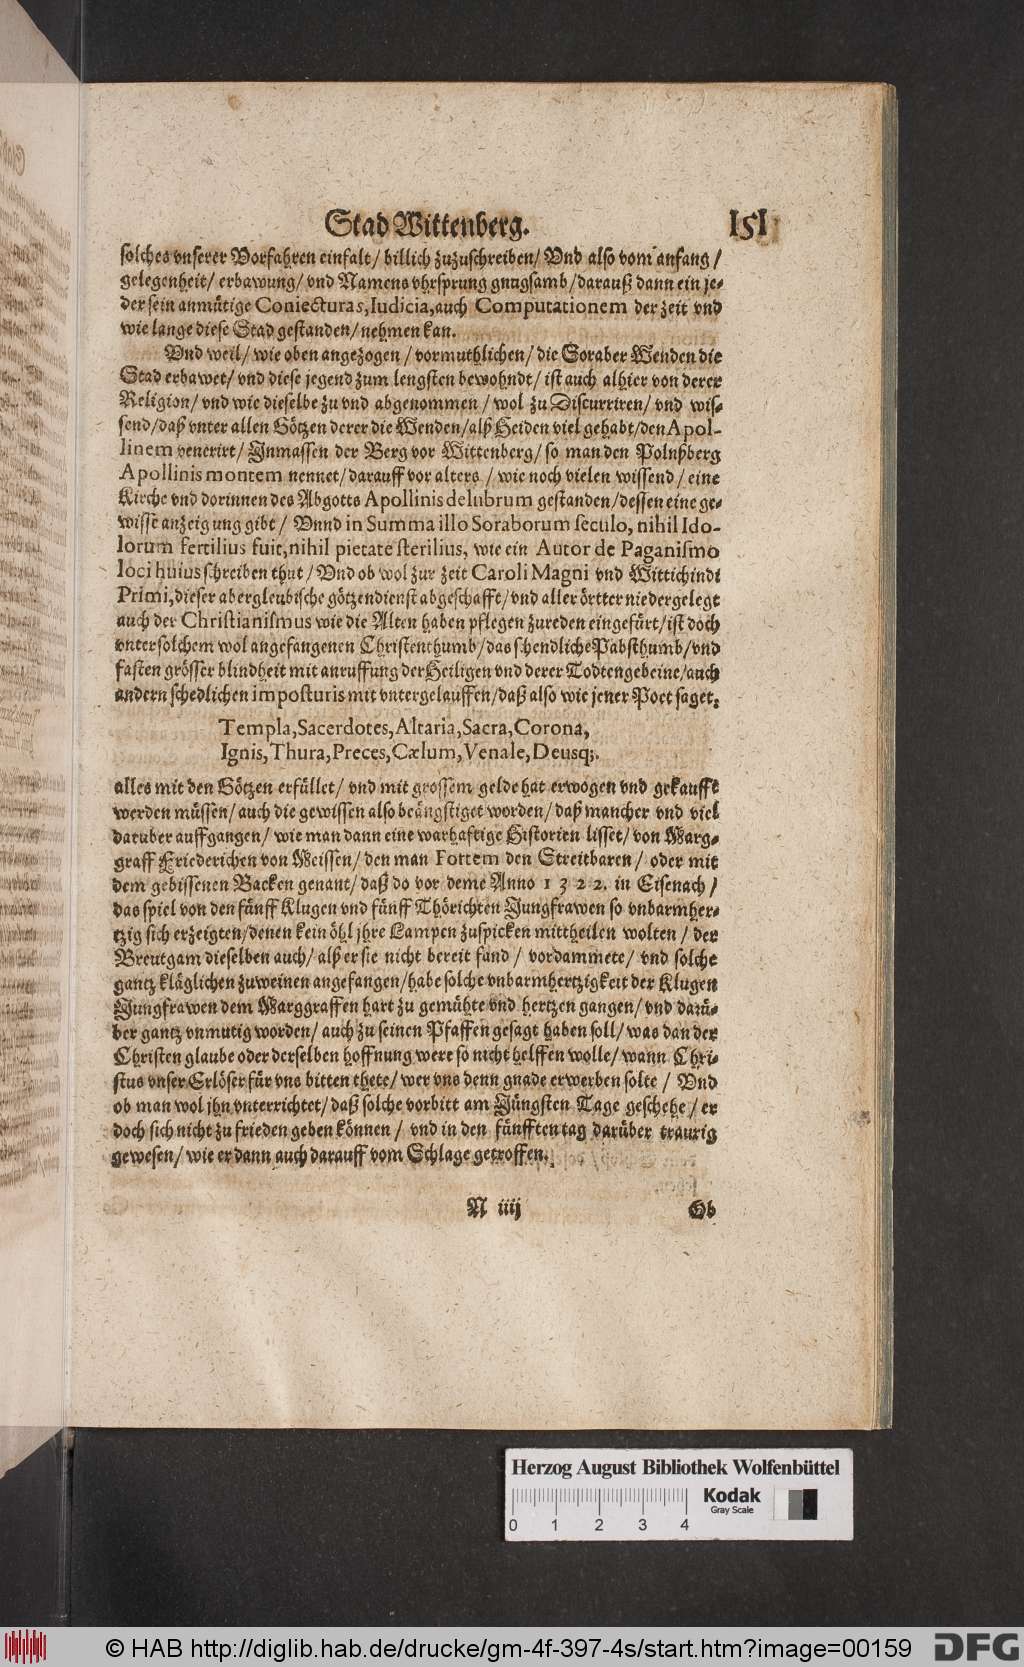 Stad Wittenberg. 151
solches vnserer Vorfahren einfalt/ billich zuzuschreiben/ Vnd also vom anfang/
gelegenheit/ erbawung/ vnd Namens vhrsprung gnugsamb/ darauß dann ein je-
der sein anmütige Coniecturas, Iudicia, auch Computationem der zeit vnd
wie lange diese Stad gestanden/ nehmen kan.
Vnd weil/ wie oben angezogen/ vormuthlichen/ die Soraber Wenden die
Stad erbawet/ vnd diese jegend zum lengsten bewohndt/ ist auch alhier von derer
Religion/ vnd wie dieselbe zu vnd abgenommen/ wol zu Discurriren/ vnd wis-
send/ daß vnter allen Götzen derer die Wenden/ alß Heiden viel gehabt/ den Apol-
linem venerirt/ Inmassen der Berg vor Wittenberg/ so man den Polnßberg
Apollinis montem nennet/ darauff vor alters/ wie noch vielen wissend/ eine
Kirche vnd dorinnen des Abgotts Apollinis delubrum gestanden/ dessen eine ge-
wisse anzeigung gibt/ Vnnd in Summa illo Soraborum seculo, nihil Ido-
lorum fertilius fuit, nihil pietate sterilius, wie ein Autor de Paganismo
loci huius schreiben thut/ Vnd ob wol zur zeit Caroli Magni vnd Wittichindi
Primi, dieser abergleubische götzendienst abgeschafft/ vnd aller örtter niedergelegt
auch der Christianismus wie die Alten haben pflegen zureden eingefürt/ ist doch
vnter solchem wol angefangenen Christenthumb/ das schendliche Pabsthumb/ vnd
fasten grösser blindheit mit anruffung der Heiligen vnd derer Todtengebeine/ auch
andern schedlichen imposturis mit vntergelauffen/ daß also wie jener Poet saget,
Templa, Sacerdotes, Altaria, Sacra, Corona,
Ignis, Thura, Preces, Cælum, Venale, Deusq;.
alles mit den Götzen erfüllet/ vnd mit grossem gelde hat erwogen vnd gekaufft
werden müssen/ auch die gewissen also beängstiget worden/ daß mancher vnd viel
darüber auffgangen/ wie man dann eine warhafftige Historien lisset/ von Marg-
graff Friederichen von Meissen/ den man Fottem den Streitbaren/ oder mit
dem gebissenen Backen genant/ daß do vor deme Anno 1322. in Eisenach/
das spiel von den fünff Klugen vnd fünff Thörichten Jungfrawen so vnbarmher-
tzig sich erzeigten/ denen kein öhl jhre Lampen zuspicken mittheilen wolten/ der
Breutgam dieselben auch/ alß er sie nicht bereit fand/ vordammete/ vnd solche
gantz kläglichen zuweinen angefangen/ habe solche vnbarmhertzigkeit der Klugen
Jungfrawen dem Marggraffen hart zu gemühte vnd hertzen gangen/ vnd darü-
ber gantz vnmutig worden/ auch zu seinen Pfaffen gesagt haben soll/ was dan der
Christen glaube oder derselben hoffnung were so nicht helffen wolle/ wann Chri-
stus vnser Erlöser für vns bitten thete/ wer vns denn gnade erwerben solte/ Vnd
ob man wol jhn vnterrichtet/ daß solche vorbitt am Jüngsten Tage geschehe/ er
doch sich nicht zu frieden geben können/ vnd in den fünfften tag darüber traurig
gewesen/ wie er dann auch darauff vom Schlage getroffen.
N iiij Ob
Herzog August Bibliothek Wolfenbüttel
Kodak
Gray Scale
0 1 2 3 4
© HAB http://diglib.hab.de/drucke/gm-4f-397-4s/start.htm?image=00159 DFG